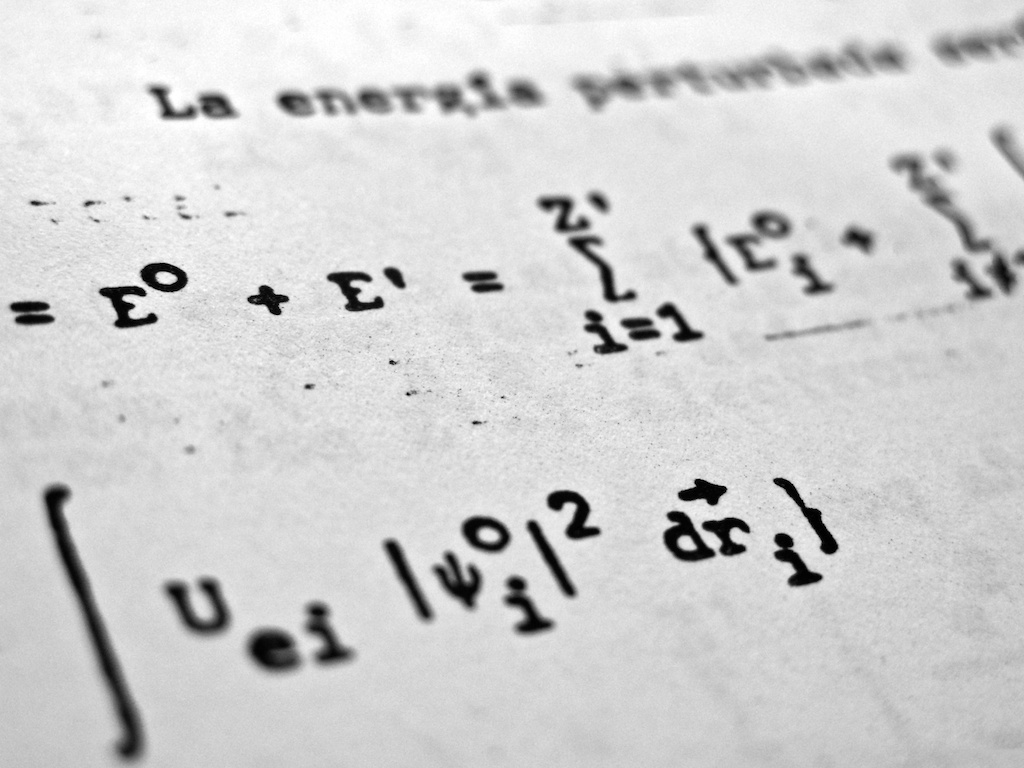 La energía perturbada
= E⁰ + E' = Z' ∑ i=1 {E⁰ᵢ + Z' ∑ i≠
∫ U ei |ψ⁰ᵢ|² dr⃗ᵢ}